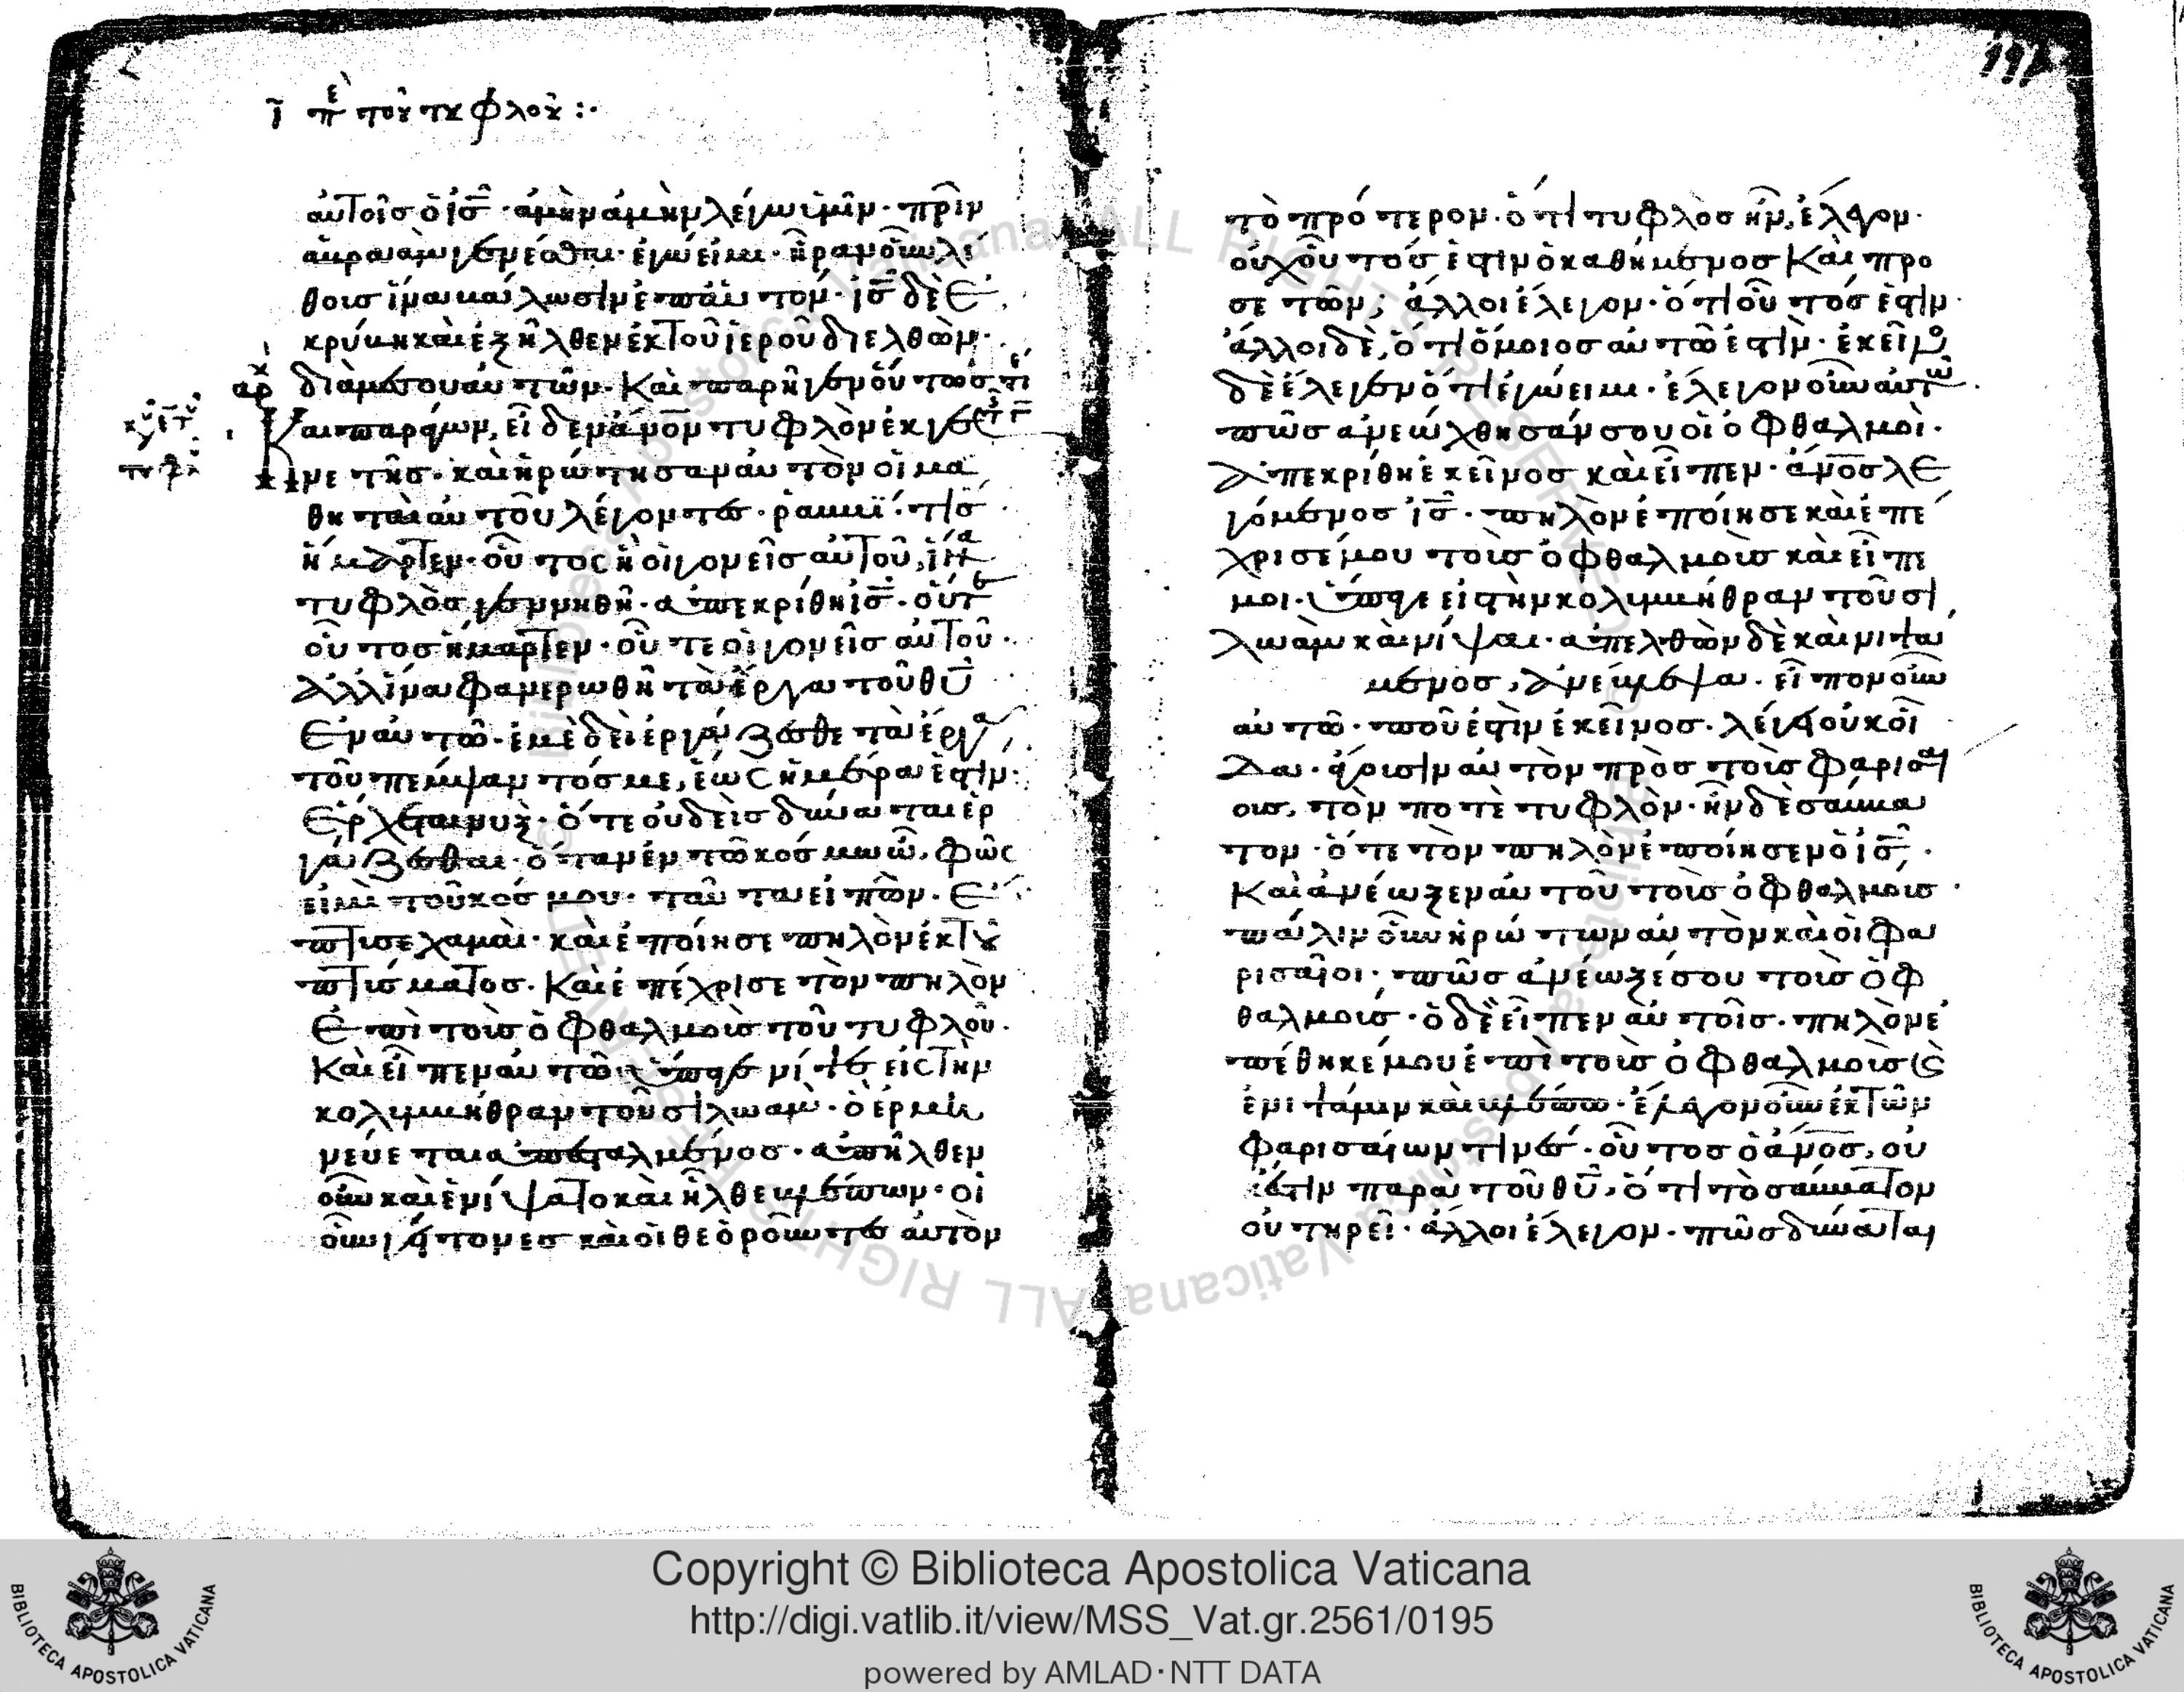 ι πε του τυφλου :·
αὐτοῖσ ὁ ἰσ̅ · ἀμὴν ἀμὴν λέγω ὑμῖν · πρὶν
ἀβραὰμ γενέσθαι · ἐγώ εἰμι · ἦραν οὖν λί
θουσ ἵνα βάλωσιν ἐπ αὐτόν · ἰσ̅ δὲ ἐ
κρύβη καὶ ἐξῆλθεν ἐκ τοῦ ἱεροῦ διελθὼν ·
διὰ μέσου αὐτῶν · Καὶ παρῆγεν οὕτωσ
Και παράγων, εἶδεν ἄνο̅ν τυφλὸν ἐκ γε
νετῆσ · καὶ ἠρώτησαν αὐτὸν οἱ μα
θηταὶ αὐτοῦ λέγοντεσ · ῥαββΐ · τίσ
ἥμαρτεν · οὗτος ἢ οἱ γονεῖσ αὐτοῦ, ἵνα
τυφλὸσ γεννηθῆ · ἀπεκρίθη ἰσ̅ · οὔτε
οὗτοσ ἥμαρτεν · οὔτε οἱ γονεῖσ αὐτοῦ ·
Ἀλλ ἵνα φανερωθῆ τὰ ἔργα τοῦ θυ̅
Ἐν αὐτῶ · ἐμὲ δεὶ ἐργάζεσθε τὰ ἔργα
τοῦ πέμψαντόσ με, ἕως ἡμέρα ἐστὶν ·
Ἔρχεται νυξ · ὅτε οὐδεὶσ δύναται ἐρ
γάζεσθαι · ὅταν ἐν τῶ κόσμω ὦ, φῶς
εἰμὶ τοῦ κόσμου · ταῦτα εἰπὼν · Ἔ
πτυσε χαμαὶ · καὶ ἐποίησε πηλὸν ἐκ τοῦ
πτύσματοσ · Καὶ ἐπέχρισε τὸν πηλὸν
Ἐπὶ τοὺσ ὀφθαλμοὺσ τοῦ τυφλοῦ ·
Καὶ εἶπεν αὐτῶ · ὕπαγε νίψε εἰς τὴν
κολυμβήθραν τοῦ σιλωάμ · ὃ ἑρμη
νεύεται ἀπεσταλμένοσ · ἀπῆλθεν
οὖν καὶ ἐνίψατο καὶ ἦλθε βλέπων · οἱ
οὖν γείτονεσ καὶ οἱ θεοροῦντεσ αὐτὸν
τὸ πρότερον · ὅτι τυφλὸσ ἦν, ἔλεγον ·
οὐχ οὗτόσ ἐστιν ὁ καθήμενοσ Καὶ προ
σετῶν ; ἄλλοι ἔλεγον · ὅτι οὗτόσ ἐστιν ·
ἄλλοι δὲ, ὅτι ὅμοιοσ αὐτῶ ἐστὶν · ἐκεῖνοσ
δὲ ἔλεγεν ὅτι ἐγώ ειμι · ἔλεγον οὖν αὐτῶ ·
πῶσ ἀνεώχθησάν σου οἱ ὀφθαλμοὶ ·
Ἀπεκρίθη ἐκεῖνοσ καὶ εἶπεν · ἄνο̅σ λε
γόμενοσ ἰσ̅ · πηλὸν ἐποίησε καὶ ἐπέ
χρισέ μου τοὺσ ὀφθαλμοὺσ καὶ εἶπε
μοι · ὕπαγε εἰσ τὴν κολυμβήθραν τοῦ σι
λωὰμ καὶ νίψαι · ἀπελθὼν δὲ καὶ νιψά
μενοσ, ἀνέβλεψα · εἶπον οὖν
αὐτῶ · ποῦ ἐστὶν ἐκεῖνοσ · λέγει οὐκ οἶ
δα · ἄγουσιν αὐτὸν πρὸσ τοὺσ φαρισαί
ουσ, τὸν ποτὲ τυφλὸν · ἦν δὲ σάββα
τον · ὅτε τὸν πηλὸν ἐποίησεν ὁ ἰσ̅, ·
Καὶ ἀνέωξεν αὐτοῦ τοὺσ ὀφθαλμοὺσ ·
πάλιν οὖν ἠρώτων αὐτὸν καὶ οἱ φα
ρισαῖοι · πῶσ ἀνέωξέ σου τοὺσ ὀφ
θαλμοὺσ · ὁ δὲ εἶπεν αὐτοῖσ · πηλὸν ἐ
πέθηκέ μου ἐπὶ τοὺσ ὀφθαλμοὺσ ϗ
ἐνιψάμην καὶ βλέπω · ἔλεγον οὖν ἐκ τῶν
φαρισαίων τινέσ · οὗτοσ ὁ ἄνο̅σ, οὐ
κ ἔστιν παρὰ τοῦ θυ̅, ὅτι τὸ σάββατον
οὐ τηρεῖ · ἄλλοι ἔλεγον · πῶσ δύναται
Copyright © Biblioteca Apostolica Vaticana
http://digi.vatlib.it/view/MSS_Vat.gr.2561/0195
powered by AMLAD·NTT DATA
BIBLIOTECA APOSTOLICA VATICANA
BIBLIOTECA APOSTOLICA VATICANA